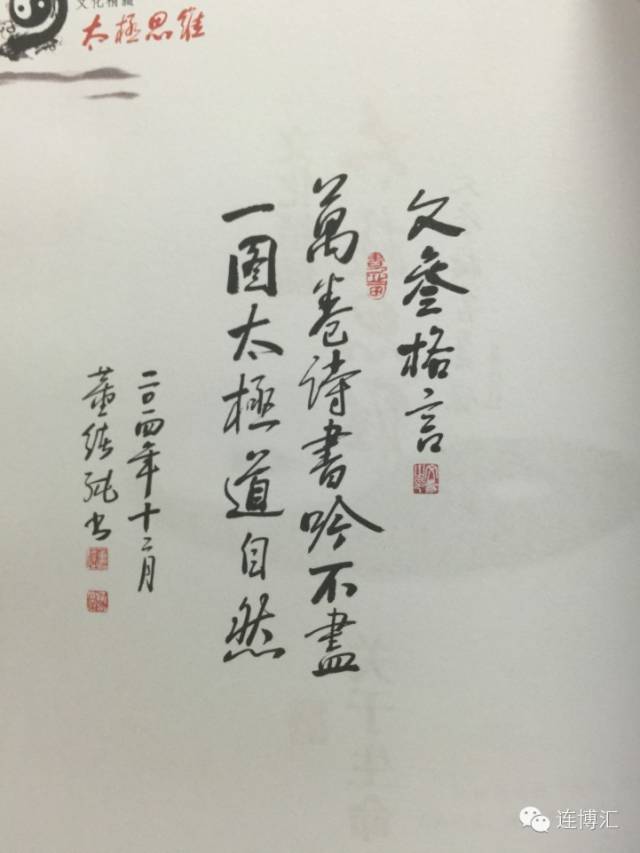 文化精藏
太極思維
文叄格言
萬卷詩書吟不盡
一圖太極道自然
二〇一四年十二月
董繞純书
关于生命
连博汇